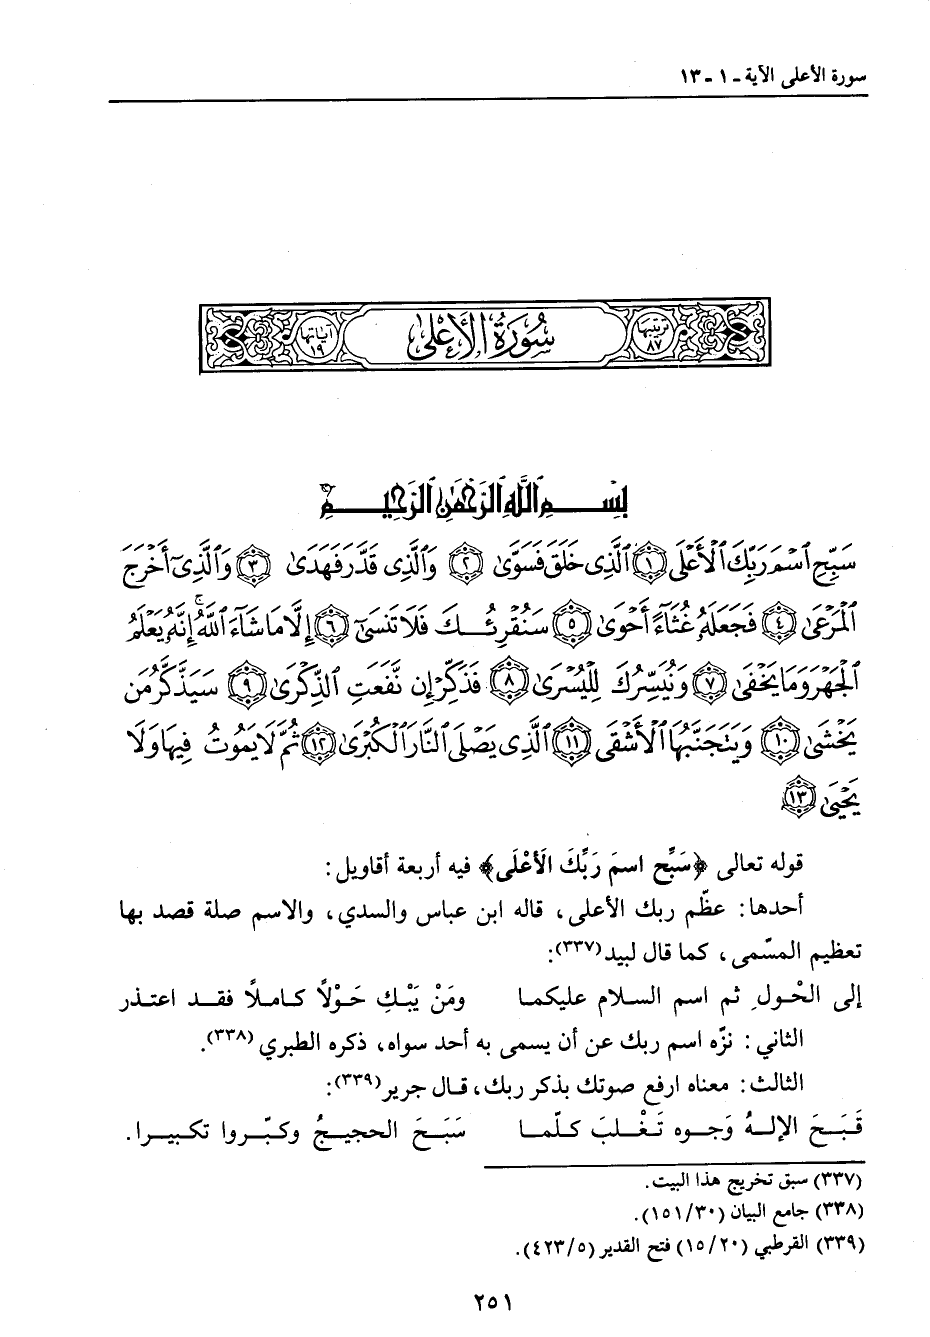 سورة الأعلى الآية ـ ١ ـ ١٣
ترتيبها ٨٧ سُورَةُ الأَعْلَى آياتها ١٩
بِسْمِ اللَّهِ الرَّحْمَٰنِ الرَّحِيمِ
سَبِّحِ ٱسْمَ رَبِّكَ ٱلْأَعْلَى ١ ٱلَّذِى خَلَقَ فَسَوَّىٰ ٢ وَٱلَّذِى قَدَّرَ فَهَدَىٰ ٣ وَٱلَّذِىٓ أَخْرَجَ
ٱلْمَرْعَىٰ ٤ فَجَعَلَهُۥ غُثَآءً أَحْوَىٰ ٥ سَنُقْرِئُكَ فَلَا تَنسَىٰٓ ٦ إِلَّا مَا شَآءَ ٱللَّهُ ۚ إِنَّهُۥ يَعْلَمُ
ٱلْجَهْرَ وَمَا يَخْفَىٰ ٧ وَنُيَسِّرُكَ لِلْيُسْرَىٰ ٨ فَذَكِّرْ إِن نَّفَعَتِ ٱلذِّكْرَىٰ ٩ سَيَذَّكَّرُ مَن
يَخْشَىٰ ١٠ وَيَتَجَنَّبُهَا ٱلْأَشْقَى ١١ ٱلَّذِى يَصْلَى ٱلنَّارَ ٱلْكُبْرَىٰ ١٢ ثُمَّ لَا يَمُوتُ فِيهَا وَلَا
يَحْيَىٰ ١٣
قوله تعالى ﴿سَبِّح اسمَ رَبِّكَ الَأعْلَى﴾ فيه أربعة أقاويل:
أحدها: عظّم ربك الأعلى، قاله ابن عباس والسدي، والاسم صلة قصد بها
تعظيم المسّمى، كما قال لبيد(٣٣٧):
إلى الحْول ثم اسم السلام عليكما ومَنْ يَبْكِ حَوْلاً كاملاً فقد اعتذر
الثاني: نزّه اسم ربك عن أن يسمى به أحد سواه، ذكره الطبري (٣٣٨).
الثالث: معناه ارفع صوتك بذكر ربك، قال جرير(٣٣٩):
قَبَحَ الإلهُ وَجوه تَغْلبَ كلّما سَبَحَ الحجيجُ وكبّروا تكبيرا.
(٣٣٧) سبق تخريج هذا البيت.
(٣٣٨) جامع البيان (١٥١/٣٠).
(٣٣٩) القرطبي (١٥/٢٠) فتح القدير (٤٢٣/٥).
٢٥١